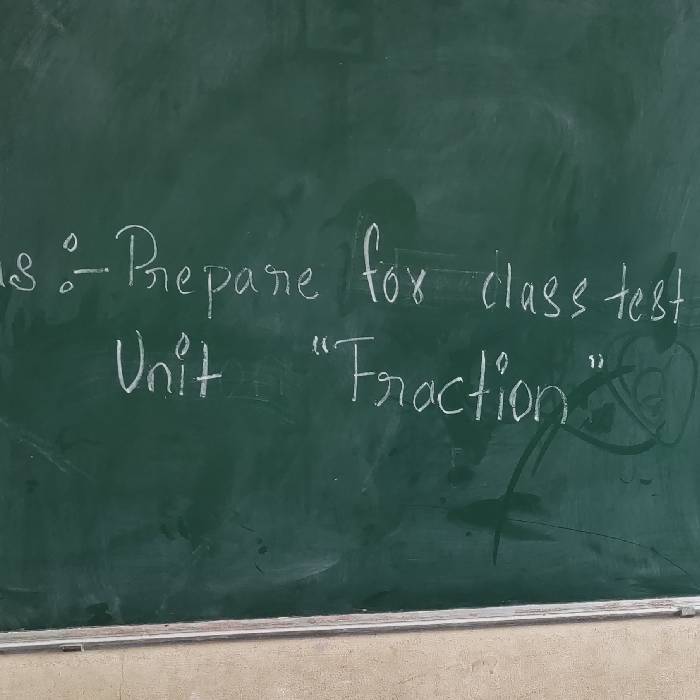 s :- Prepare for class test
Unit "Fraction"